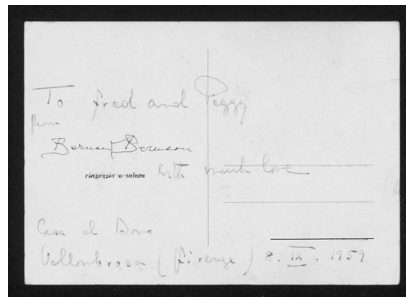 To Fred and Peggy
from
Bernard Berenson
ringrazia e saluta
with much love
Casa al Dono
Vallombrosa (Firenze) 8. IX. 1959